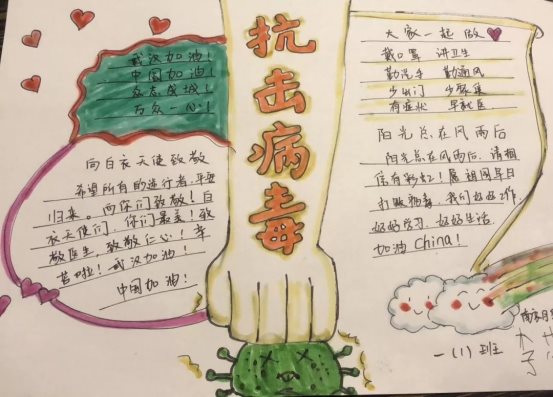 抗击病毒
武汉加油!
中国加油!
众志成城!
万众一心!
向白衣天使致敬
希望所有的逆行者,平安
归来。向你们致敬!白
衣天使们,你们最美!致
敬医生,致敬仁心!辛
苦啦!武汉加油!
中国加油!
大家一起做
戴口罩 讲卫生
勤洗手 勤通风
少出门 少聚集
有症状 早就医
阳光总在风雨后
阳光总在风雨后,请相
信有彩虹!愿祖国早日
打败病毒,我们好好工作,
好好学习,好好生活,
加油China!
一(1)班